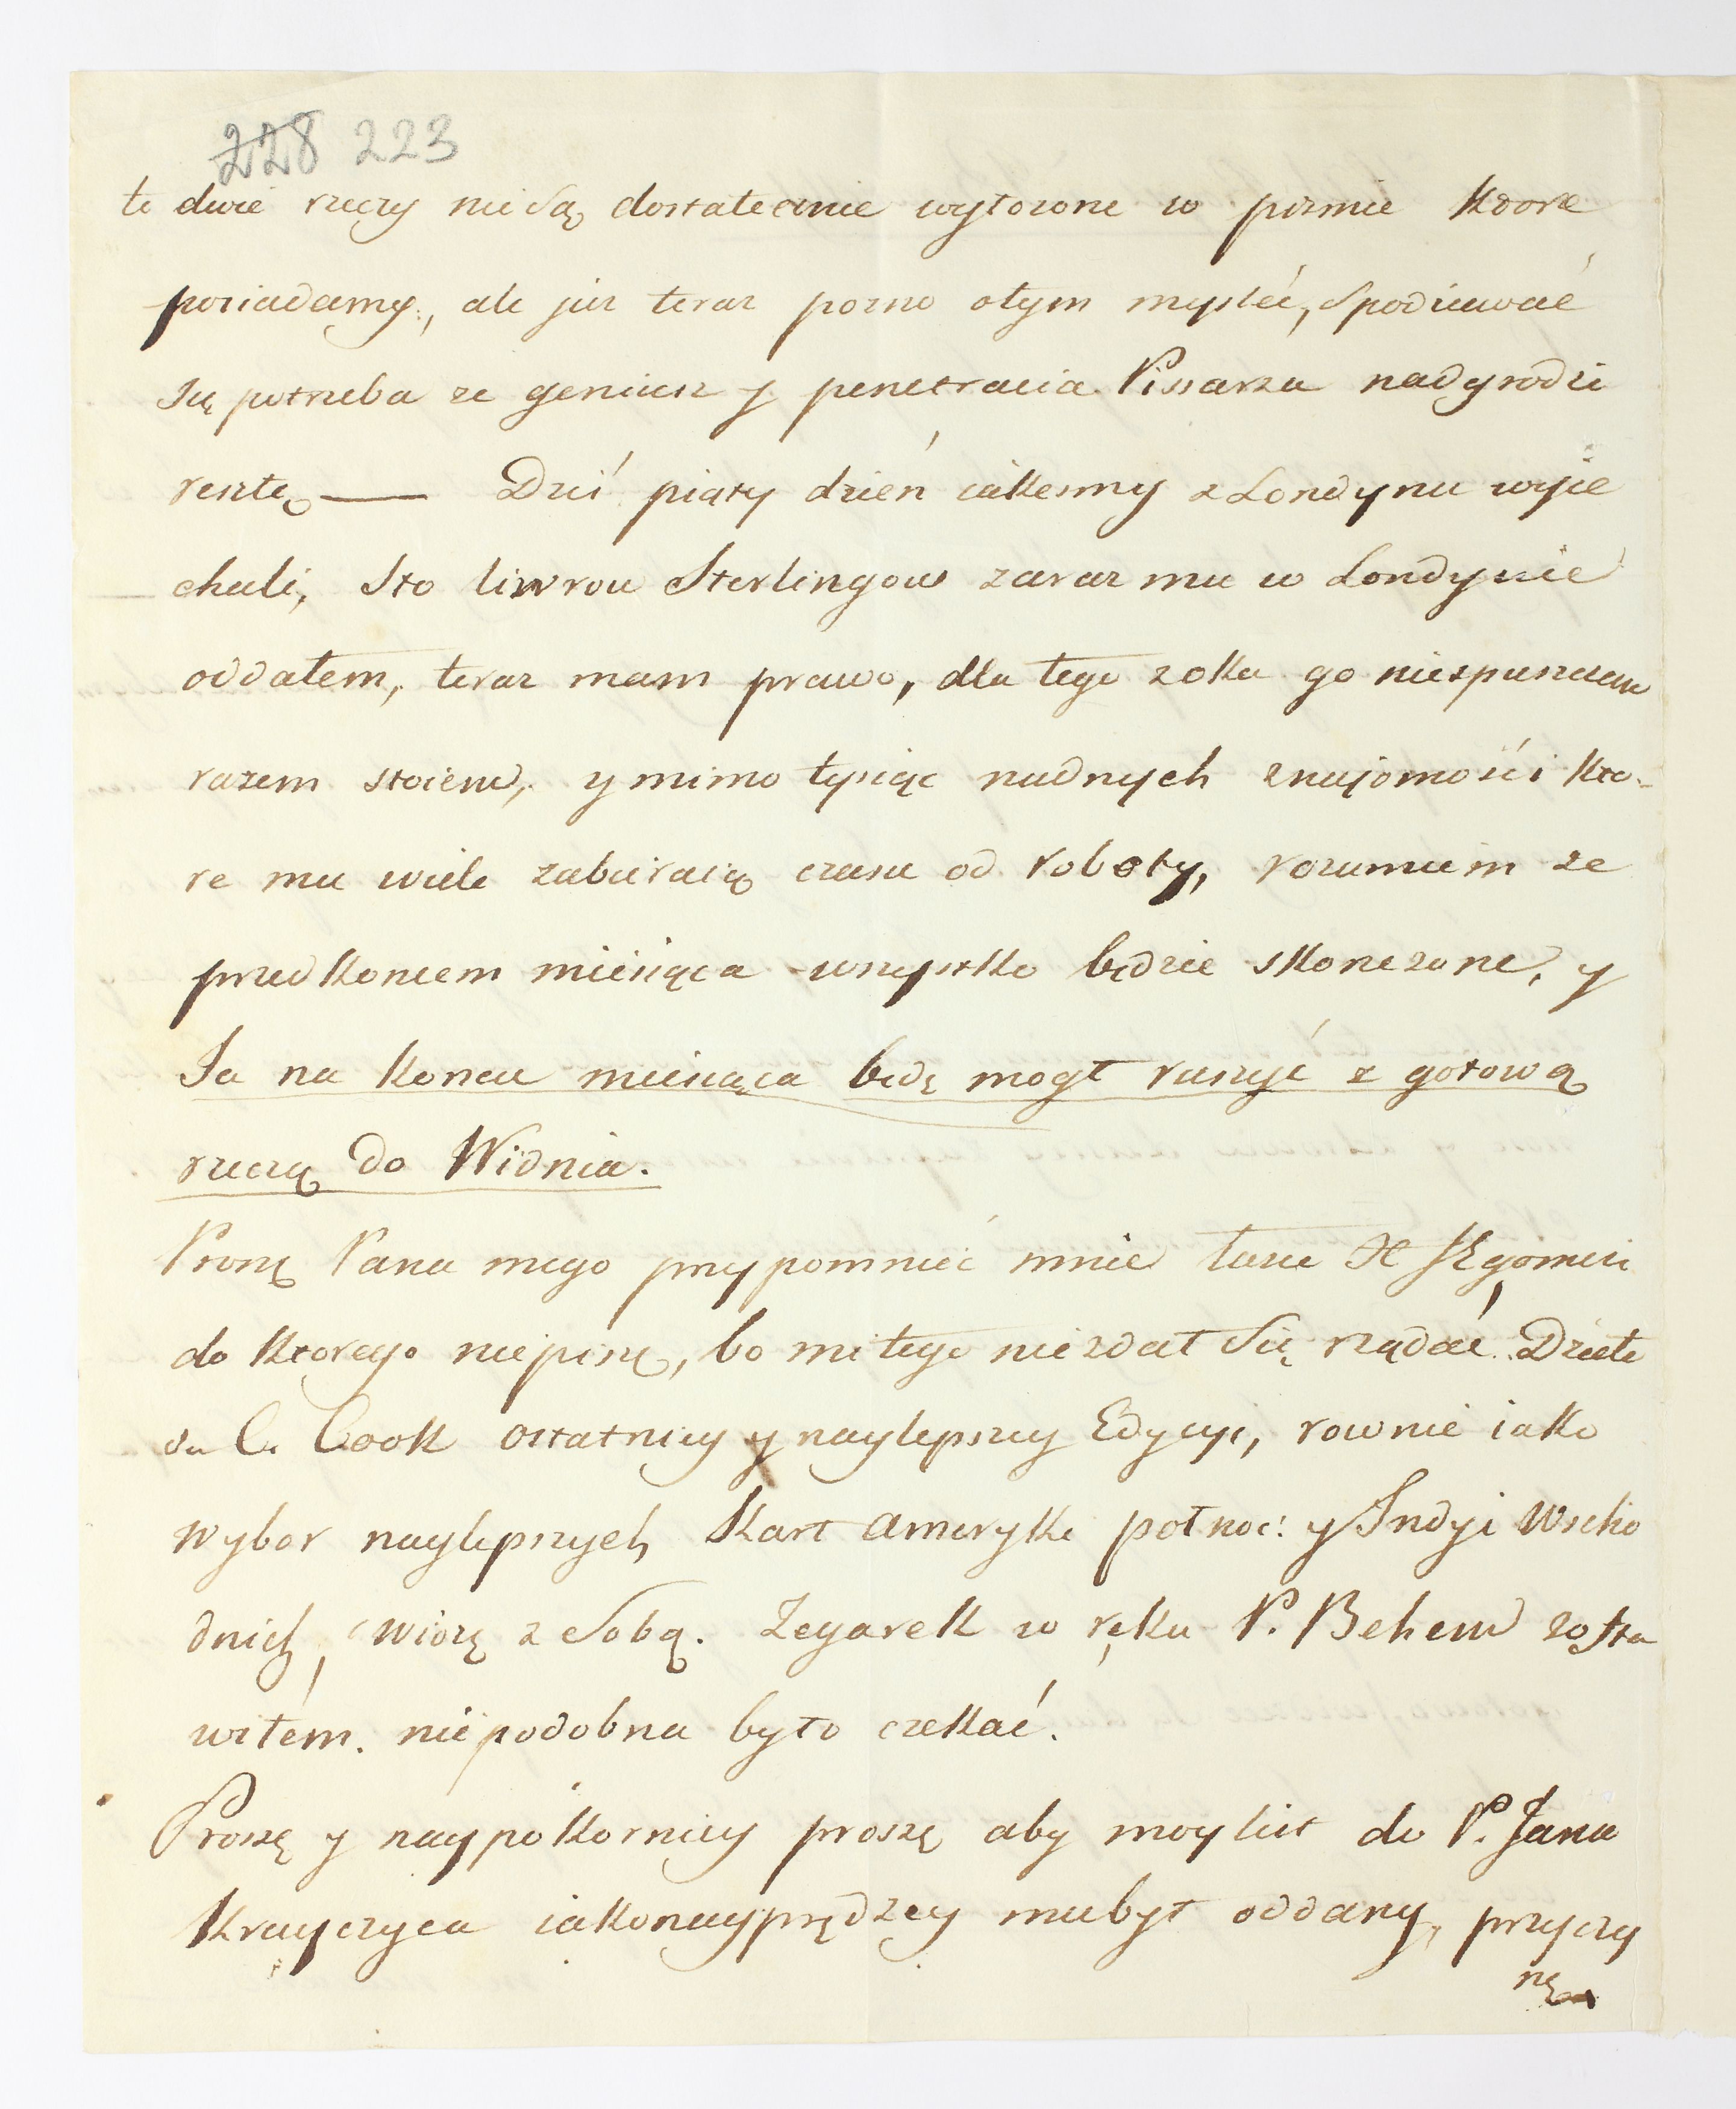 228 223
te dwie rzeczy nie są dostatecznie wyłozone w pismie ktore
posiadamy, ale juz teraz pozno otym mysleć, Spodziewać
się potrzeba ze geniusz y penetracia Pissarza nadgrodzi
resztę — Dziś piąty dzień iakesmy z Londynu wyie
chali, Sto liwrow Sterlingow zaraz mu w Londynie
oddałem, teraz mam prawo, dla tego z oka go niespuszczam
razem stoiem, y mimo tysiąc nudnych znajomości kto-
re mu wiele zabieraią czasu od roboty, rozumiem ze
przed koncem miesiąca wszystko będzie skonczone, y
Ja na koncu miesiąca będę mogł ruszyć z gotową
rzeczą do Widnia.
Proszę Pana mego przypomnieć mnie łasce X
do ktorego niepiszę, bo mi tego nie zdał Się rządać. Dzieła
C. Cook ostatniey y naylepszey Edycyi, rownie iako
wybor naylepszych Kart Ameryki połnoc: y Indyi Wscho
dnich, wiozę z Sobą. Zegarek w ręku P. Behem zosta
wiłem. niepodobna było czekać.
Proszę y naypokorniey proszę aby moy list do P. Jana
Krayczyca iakonayprędzey mubył oddany, przyczy
nę